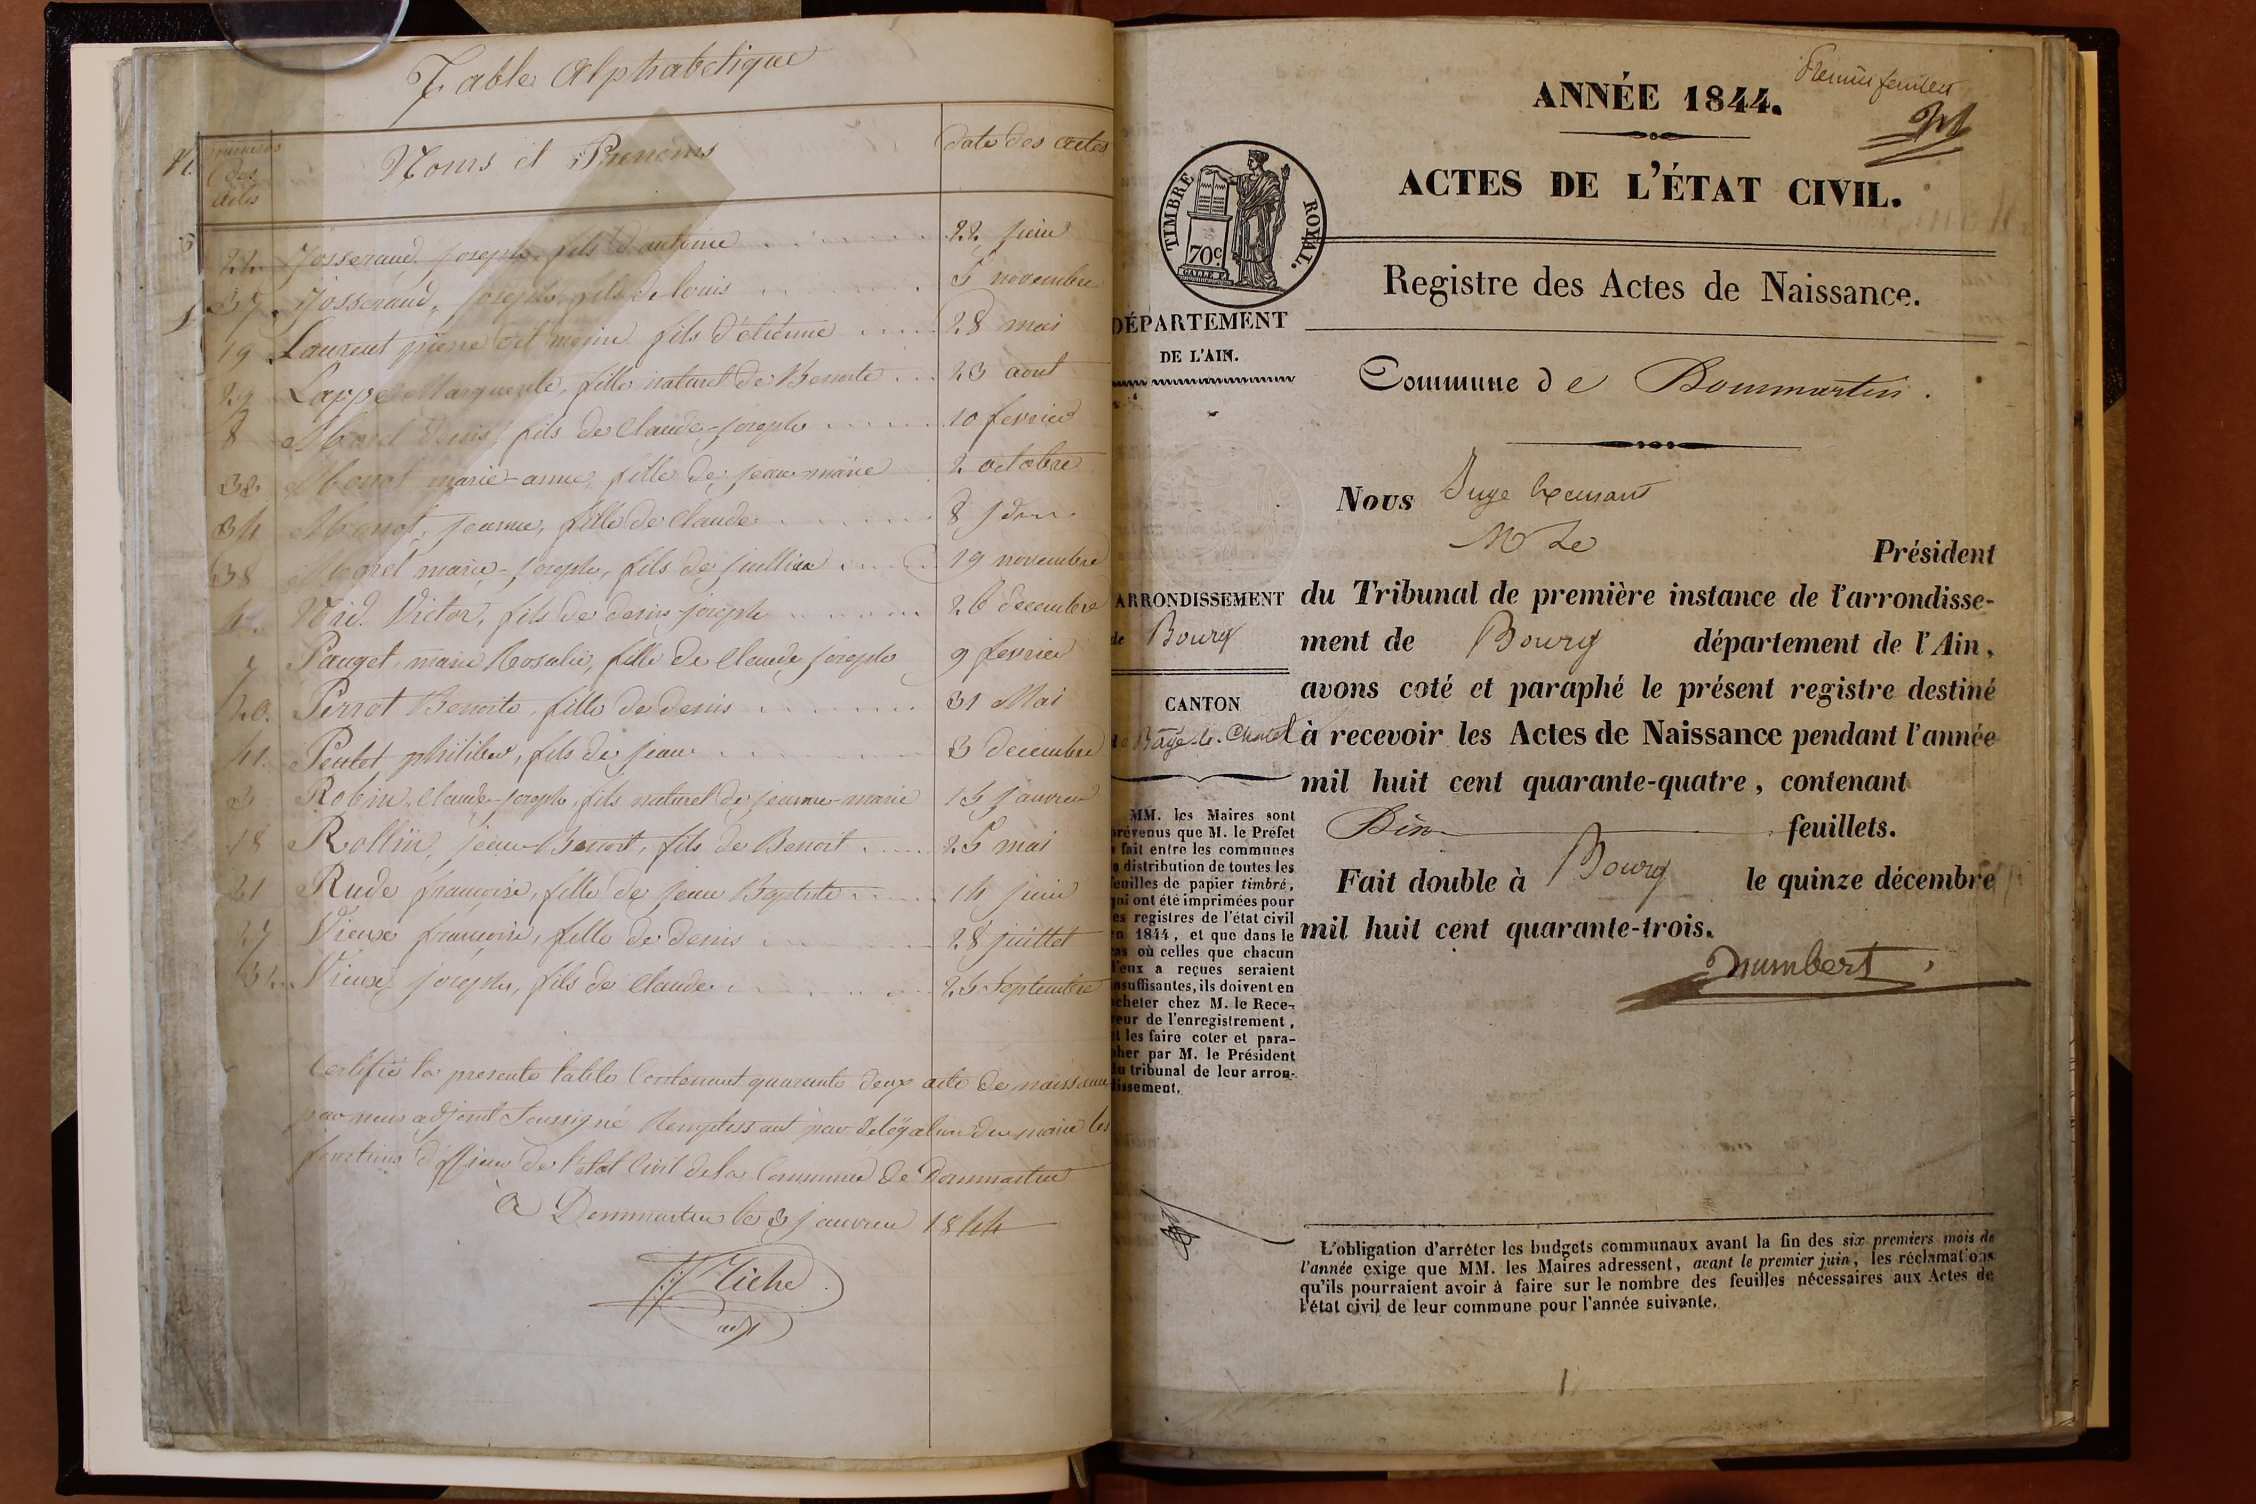 Table Alphabetique
numeros des actes
Noms et Prenoms
date des actes
22 Josserand, joseph, fils d'antoine 22 juin
37 Josserand, joseph, fils de louis 5 novembre
19 Laurent pierre fils d'étiénne 28 mai
29 Lappe Marguerite, fille naturel de Benoite 23 aout
8 Morel Denis, fils de Claude-joseph 10 fevrier
32 Monot marie-anne, fille de jean-marie 2 octobre
34 Monot, jeanne, fille de Claude 8 idem
38 marie-joseph, fils de jullien 19 novembre
42 Nid. Victor, fils de denis-joseph 26 decembre
7 Pauget, marie Rosalie, fille de Claude joseph 9 fevrier
20. Perrot Benoite, fille de denis 31 Mai
41. Peulet philiber, fils de jean 3 decembre
3 Robin, Claude-joseph, fils naturel de jeanne-marie 15 janvier
18 Rollin, jean-Benoit, fils de Benoit 25 mai
21 Rude françoise, fille de jean Baptiste 14 juin
27 Vieux françoise, fille de denis 28 juillet
31. Vieux joseph, fils de Claude 25 Septembre
Certifié la presente table Contenant quarante deux acte de naissance
par nous adjoint Soussigné Remplissant par délégation du maire les
fonctions d'officier de l'etat Civil de la Commune de Dommartin
a Dommartin le 3 janvier 1844
Riche
adj
Premier feuillet
ANNÉE 1844.
ACTES DE L'ÉTAT CIVIL.
TIMBRE ROYAL.
70c.
Registre des Actes de Naissance.
DÉPARTEMENT
DE L'AIN.
Commune de Dommartin.
Nous Juge
M Le
Président
ARRONDISSEMENT
de Bourg
CANTON
de Bagé-le-Chatel
du Tribunal de première instance de l'arrondisse-
ment de Bourg département de l'Ain,
avons coté et paraphé le présent registre destiné
à recevoir les Actes de Naissance pendant l'année
mil huit cent quarante-quatre, contenant
Dix feuillets.
Fait double à Bourg le quinze décembre
mil huit cent quarante-trois.
MM. les Maires sont
prévenus que M. le Préfet
a fait entre les communes
la distribution de toutes les
feuilles de papier timbré,
qui ont été imprimées pour
les registres de l'état civil
en 1844, et que dans le
cas où celles que chacun
d'eux a reçues seraient
insuffisantes, ils doivent en
acheter chez M. le Rece-
veur de l'enregistrement,
et les faire coter et para-
pher par M. le Président
du tribunal de leur arron-
dissement.
L'obligation d'arrêter les budgets communaux avant la fin des six premiers mois de
l'année exige que MM. les Maires adressent, avant le premier juin, les réclamations
qu'ils pourraient avoir à faire sur le nombre des feuilles nécessaires aux Actes de
l'état civil de leur commune pour l'année suivante.